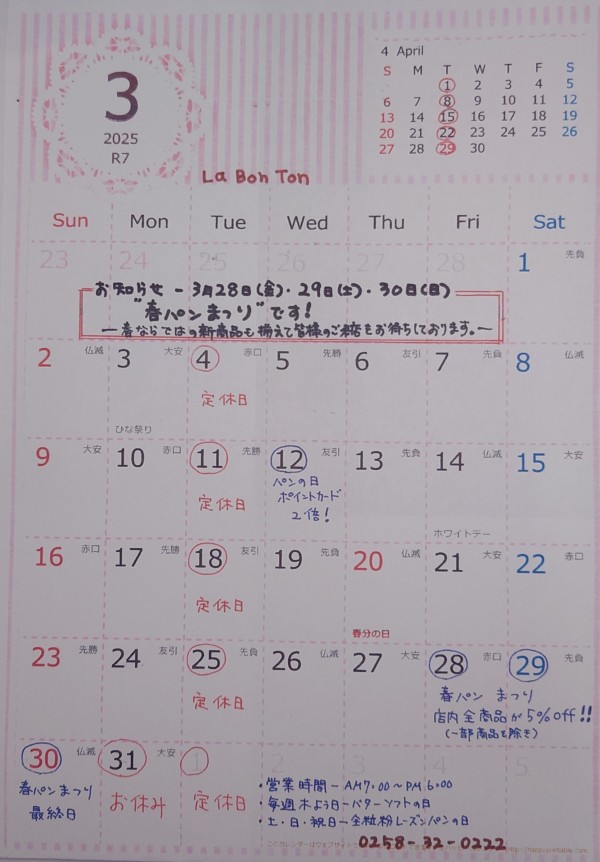 3
2025
R7
4 April
S M T W T F S
1 2 3 4 5
6 7 8 9 10 11 12
13 14 15 16 17 18 19
20 21 22 23 24 25 26
27 28 29 30
La Bon Ton
Sun Mon Tue Wed Thu Fri Sat
23 24 25 26 27 28 1 先負
お知らせ - 3月28日(金)・29日(土)・30日(日)
"春パンまつり"です!
ー春ならではの新商品も揃えて皆様のご来店をお待ちしております。ー
2 仏滅 3 大安 4 赤口 5 先勝 6 友引 7 先負 8 仏滅
定休日
ひな祭り
9 大安 10 赤口 11 先勝 12 友引 13 先負 14 仏滅 15 大安
定休日
パンの日
ポイントカード
2倍!
ホワイトデー
16 赤口 17 先勝 18 友引 19 先負 20 仏滅 21 大安 22 赤口
定休日
春分の日
23 先勝 24 友引 25 先負 26 仏滅 27 大安 28 赤口 29 先負
定休日
春パン まつり
店内全商品が5%off!!
(一部商品を除き)
30 仏滅 31 大安 1 2 3 4 5
春パンまつり
最終日
お休み
定休日
・営業時間-AM7:00~PM6:00
・毎週木よう日-バターソフトの日
・土・日・祝日-全粒粉レーズンパンの日
0258-32-0222